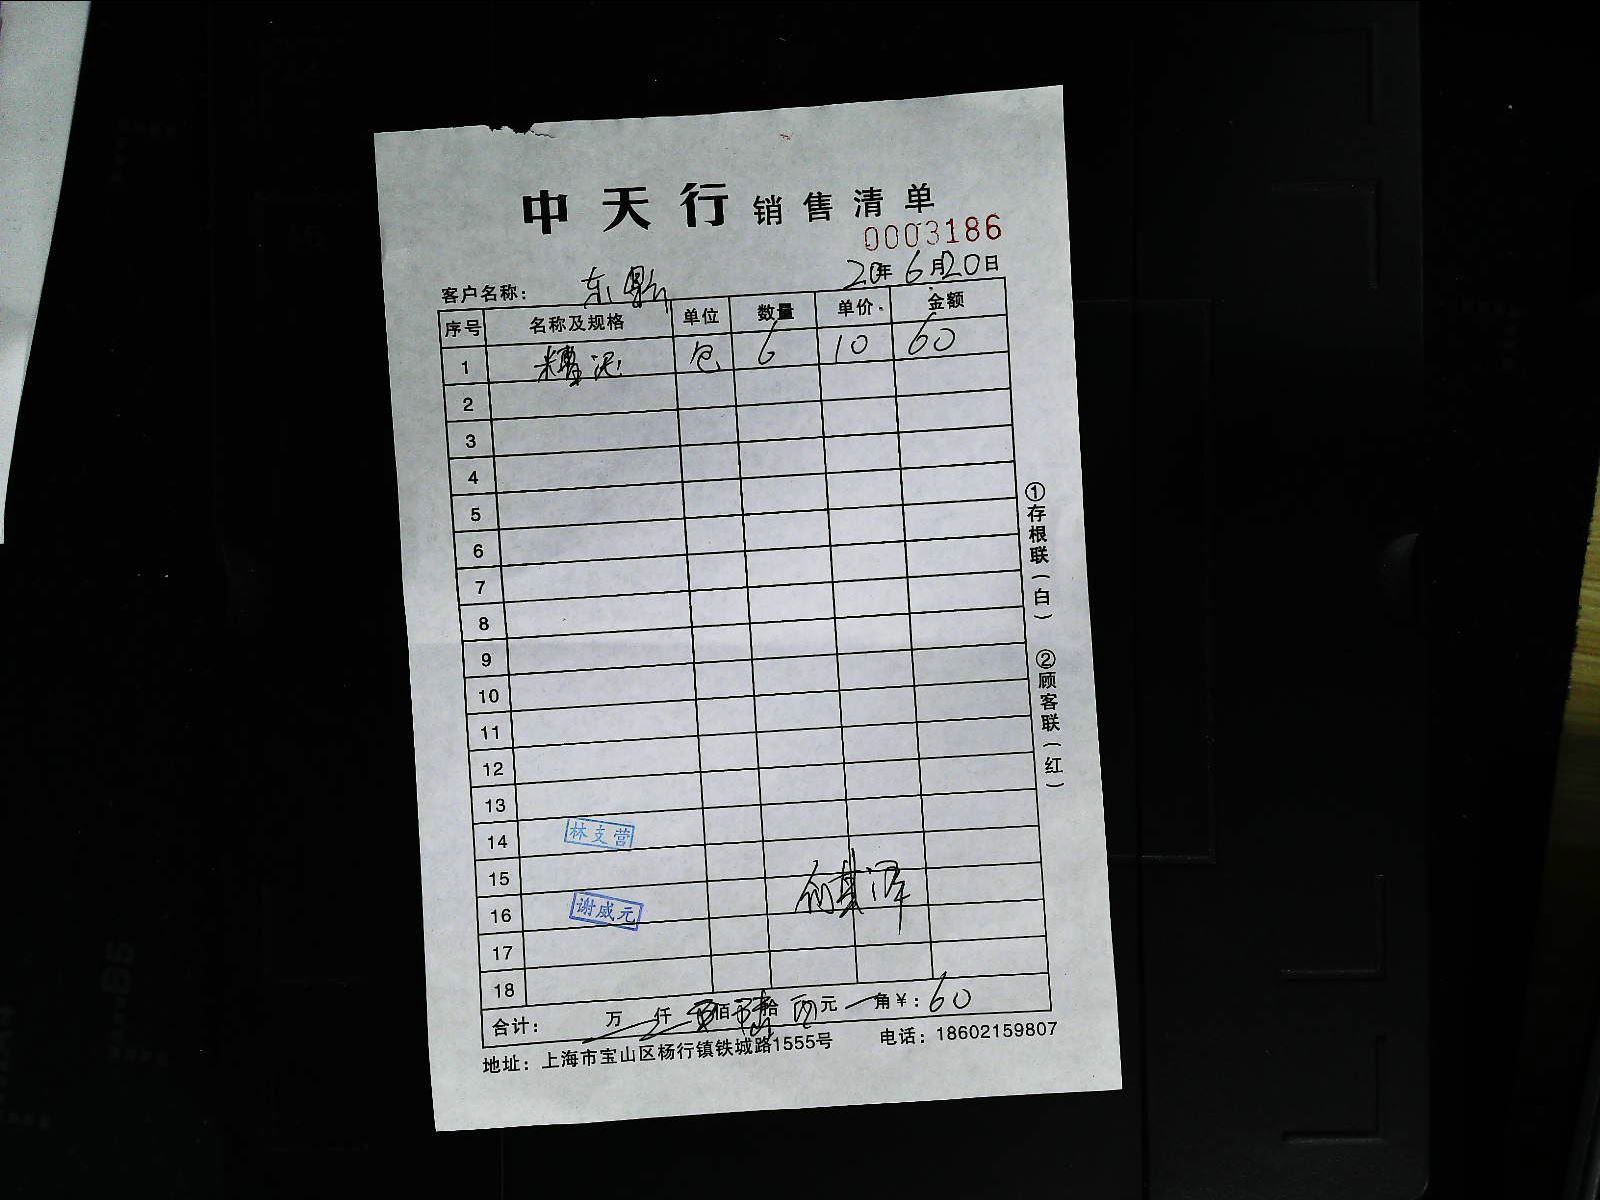 中天行 销售清单
0003186
客户名称： 东
20年 6月20日
序号 名称及规格 单位 数量 单价 金额
1 糟泥 包 6 10 60
2
3
4
5
6
7
8
9
10
11
12
13
14 林支营
15
16 谢威元
17
18
合计： 万 仟 佰 拾 元 角 ￥：60
地址：上海市宝山区杨行镇铁城路1555号 电话：18602159807
①存根联（白） ②顾客联（红）